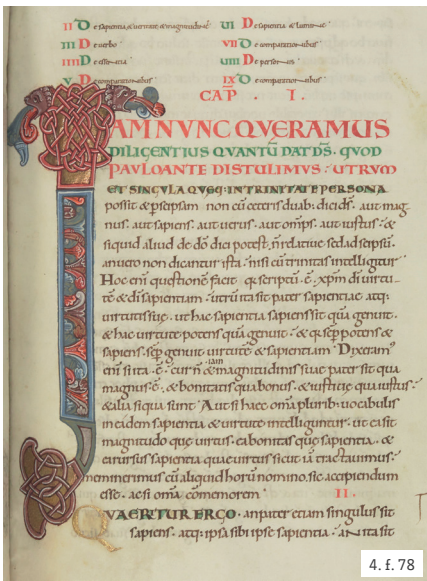 II De sapientia & uirtute & magnitudine VI De sapientia & lumine
III De uerbo VII De comparationibus
IIII De essentia VIII De personis
V De comparationibus IX De comparationibus
CAP̅ . I.
IAM NVNC QVERAMUS
DILIGENTIUS QUANTU̅ DAT D̅S. QVOD
PAULOANTE DISTULIMVS: UTRVM
ET SINGVLA QVEQ: INTRINITATE PERSONA
possit & p̲seipsam non cu̅ ceteris duab; dici d̅s. aut mag
nus. aut sapiens. aut uerus. aut om̅ps. aut iustus. &
siquid aliud de d̅o dici potest. n̅ relatiue sed ad seipsu̅.
an uero non dicantur ista. nisi cu̅ trinitas intelligitur
Hoc eni̅ questione̅ facit. q̅ scriptu̅ .e̅. xp̅m di̅ uirtu-
te̅ & di̅ sapientiam. utru̅ ita sit pater sapientiae atq;
uirtutis suę. ut hac sapientia sapiens sit qua̅ genuit.
& hac uirtute potens qua̅ genuit. & q̅ semp̲ potens &
sapiens. semp̲ genuit uirtute̅ & sapientiam. Dixeram᾽
eni̅ si ita .e̅. cur n̅ & magnitudinis suae pater sit qua
iam
magnus .e̅. & bonitatis qua bonus. & iustitię qua iustus.
& alia siqua sunt. Aut si haec om̅a plurib; uocabulis
in eadem sapientia & uirtute intelliguntur. ut ea sit
magnitudo quę uirtus. ea bonitas quę sapientia. &
ea rursus sapientia quae uirtus sicut ia̅ tractauimus.
meminerimus cu̅ aliquid horu̅ nomino. sic accipiendum
esse. acsi om̅a comemorem. II.
QVAERITUR ERGO. an pater etiam singulus sit
sapiens. atq; ipsa sibi ipse sapientia. An ita sit
4. f. 78